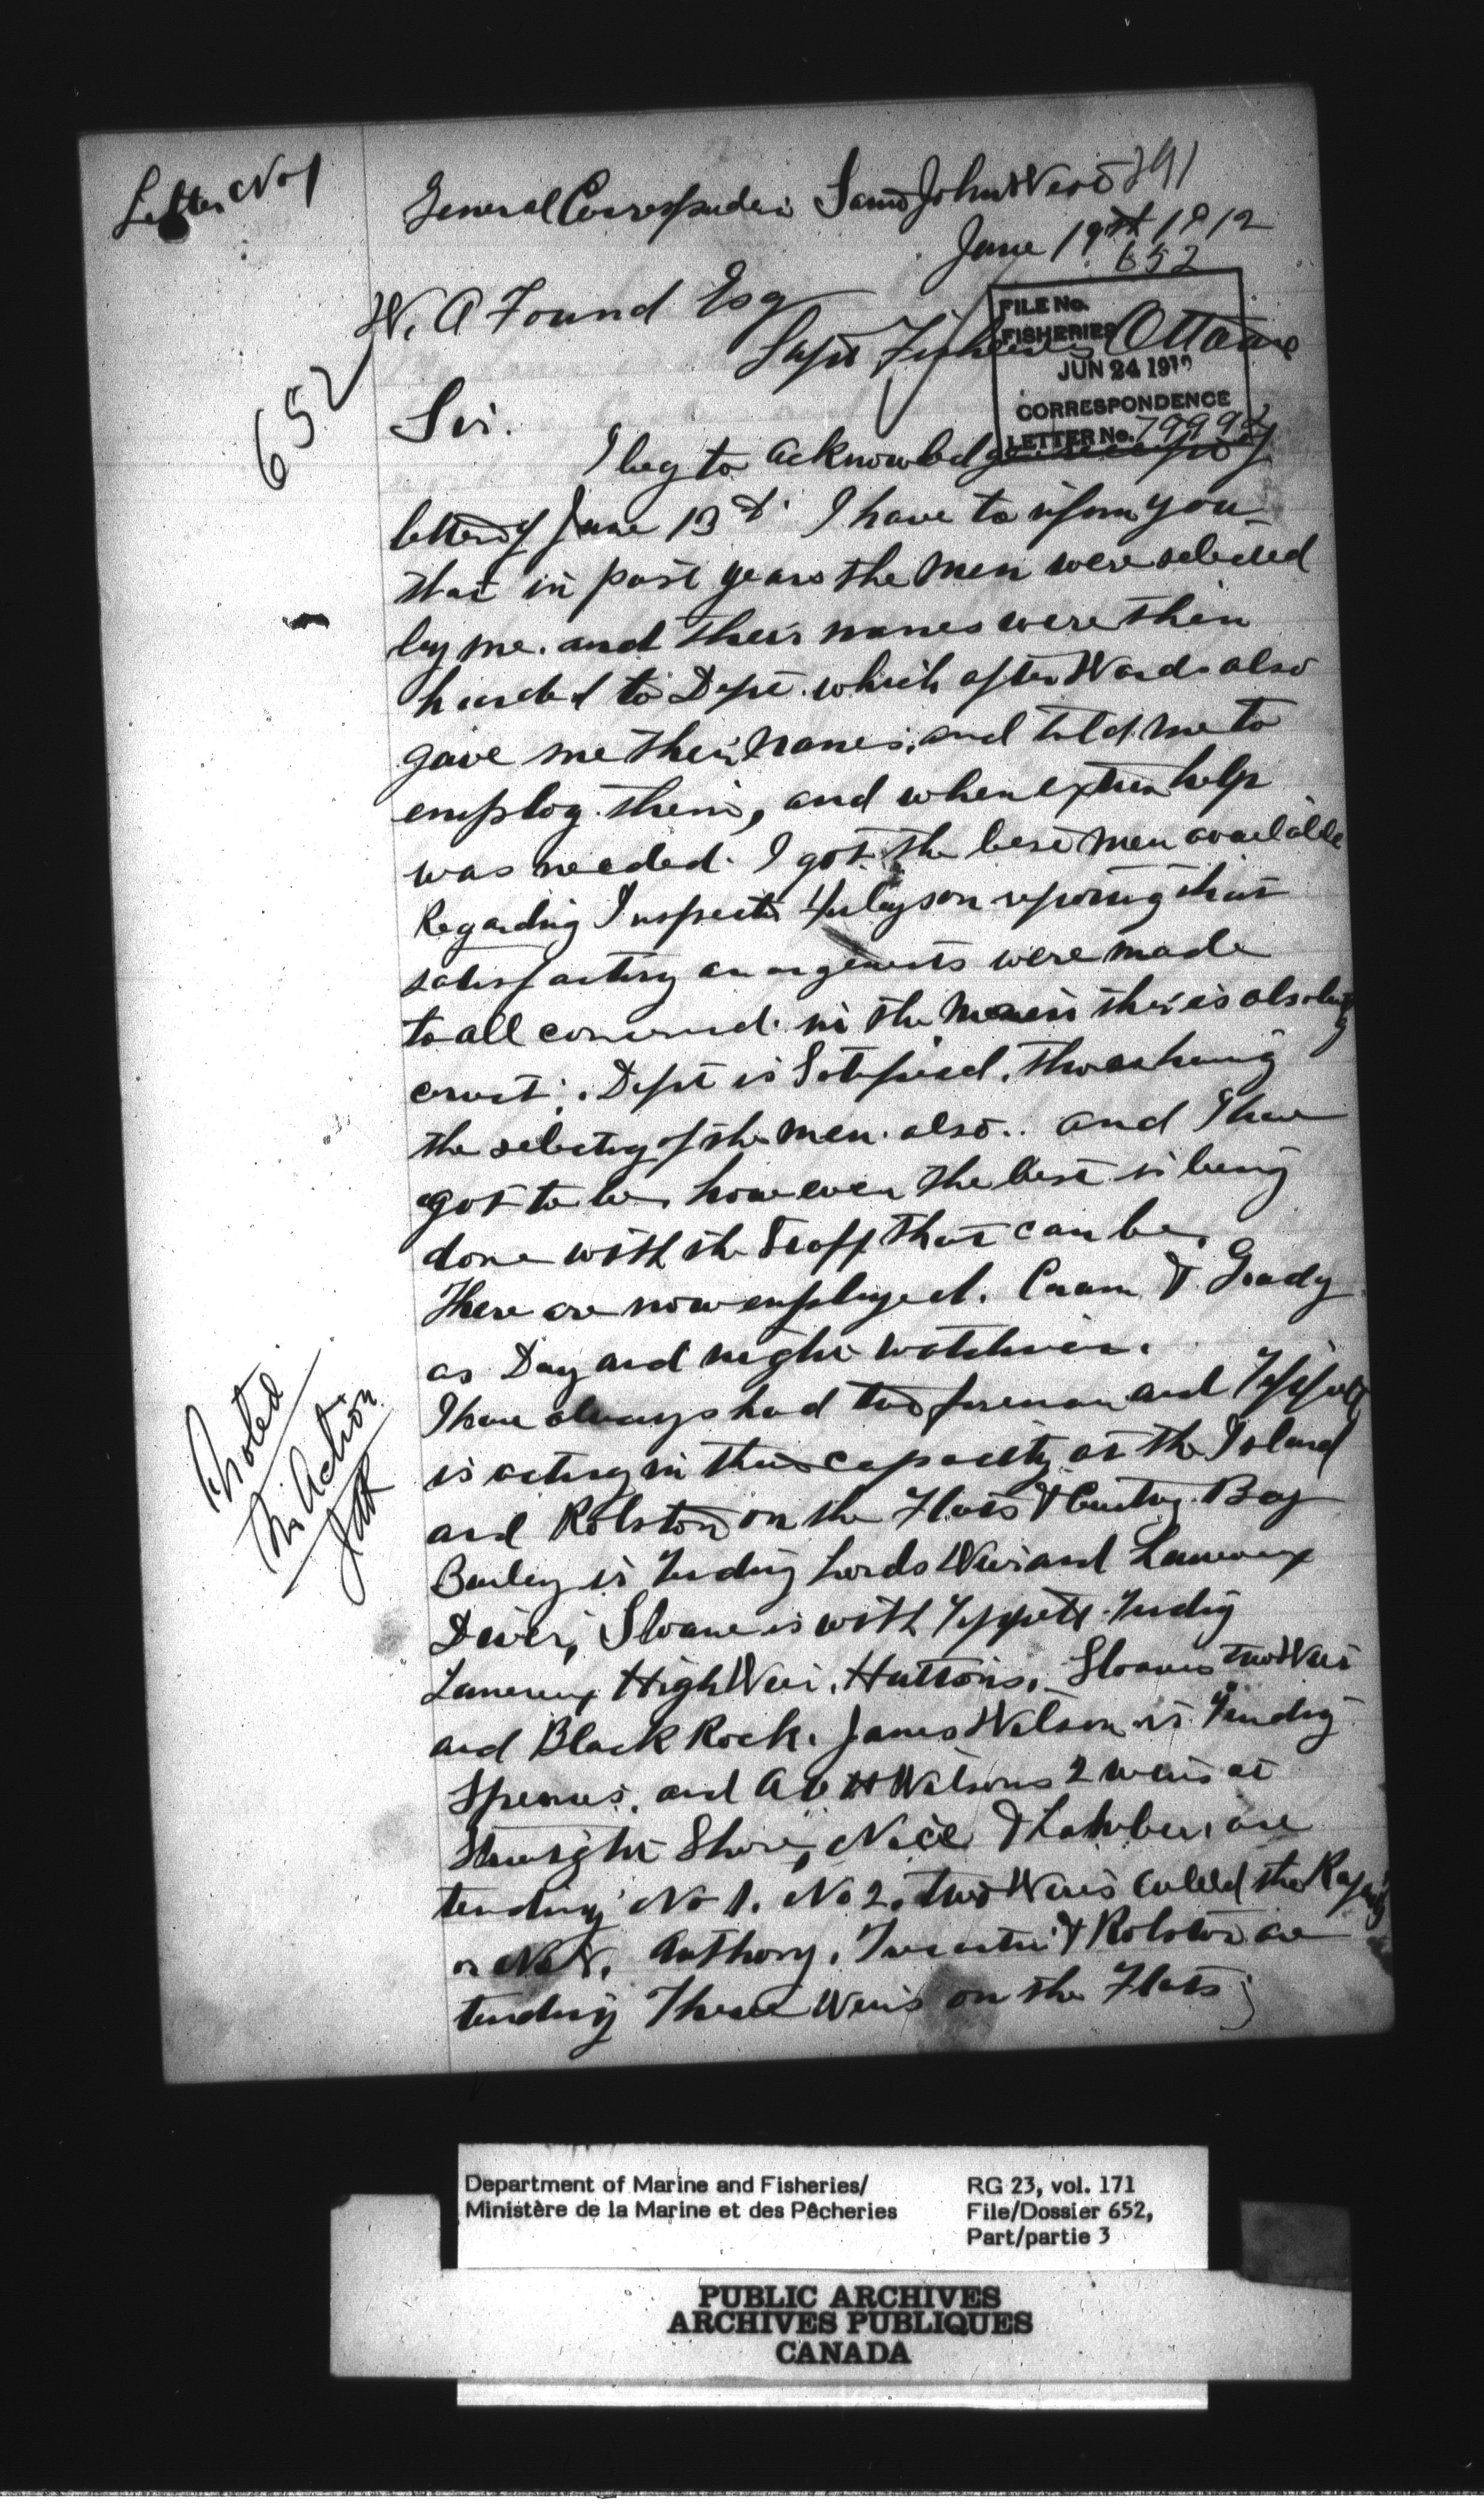 Letter No 1
General Correspondence Saint John West 391
June 19th 1912
652
W. A Found Esq
Supt Fisheries Ottawa
FILE No.
FISHERIES
JUN 24 1912
CORRESPONDENCE
LETTER No. 79992
652
Sir.
I beg to acknowledge receipt of
letter of June 13th I have to inform you
that in past years the men were selected
by me. and their names were then
handed to Dept. which afterwards also
gave me their names, and told me to
employ them, and when extra help
was needed. I got the best men available
Regarding Inspector reporting that
satisfactory arrangements were made
to all concerned. in the main this is absolutely
correct. Dept is Satisfied.
the selecting of the men also.. and I have
got to be, however the best is being
done with the Staff that can be.
There are now employed. Cram & Grady
as Day and night watchmen.
I have always had two foreman and Tippett
is acting in this capacity at the Island
and Rolston on the Flats & Courtney Bay
Noted
No Action
Bailey is Tending Lords Weir and
Sloane is with Tippett Tending
High Weir, Huttons, Sloanes two Weir
and Black Rock. James Wilson is Tending
and A & H Watsons 2 weirs at
Straight Shore, Nice & are
tending No 1. No 2. two Weirs called the
Anthony, & Rolston are
tending Three Weirs on the Flats
Department of Marine and Fisheries/
Ministère de la Marine et des Pêcheries
RG 23, vol. 171
File/Dossier 652,
Part/partie 3
PUBLIC ARCHIVES
ARCHIVES PUBLIQUES
CANADA